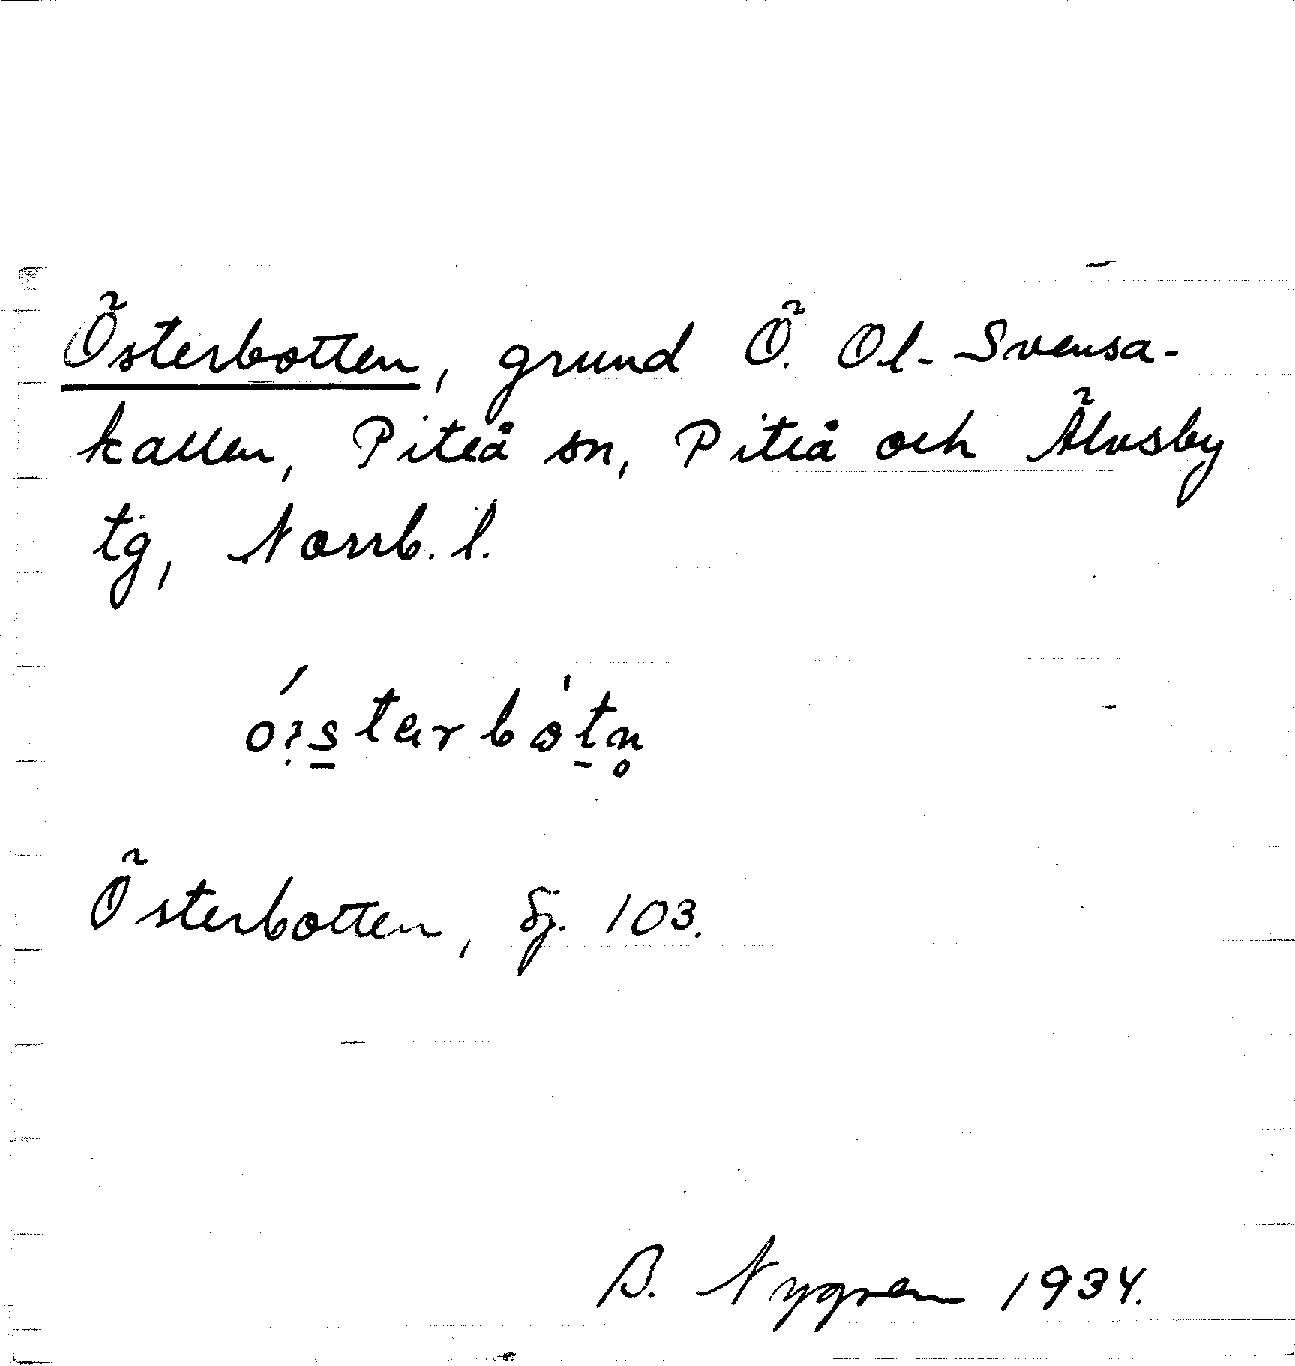 Österbotten, grund Ö. Ol-Svensa-
kallen, Piteå sn, Piteå och Älvsby
tg, Norrb. l.
Österbotten, Sj. 103.
B. Nygren 1934.